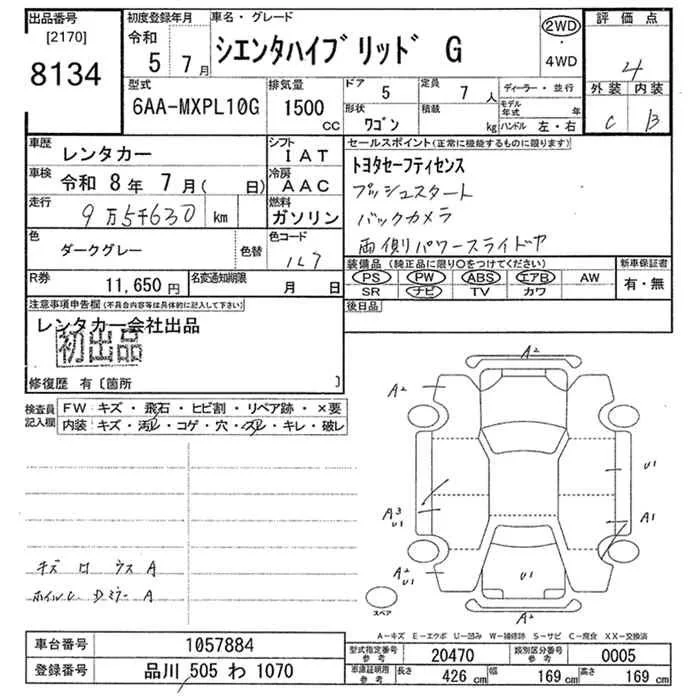 出品番号
[2170]
8134
初度登録年月
令和
5 7月
車名・グレード
シエンタハイブリッド G
2WD
・
4WD
評価点
4
外装 内装
C B
型式
6AA-MXPL10G
排気量
1500
CC
ドア
5
定員
7人
形状
ワゴン
積載
kg
ディーラー・並行
モデル年式 年
ハンドル 左・右
車歴
レンタカー
車検 令和 8年 7月( 日)
走行
9万5千630 km
色
ダークグレー
色替
シフト
IAT
冷房
AAC
燃料
ガソリン
色コード
1L7
R券 11,650円
名変通知期限
月 日
セールスポイント(正常に機能するものに限ります)
トヨタセーフティセンス
プッシュスタート
バックカメラ
両側パワースライドドア
装備品(純正品に限り○をつけてください)
PS PW ABS エアB AW
SR ナビ TV カワ
新車保証書
有・無
後日品
注意事項申告欄(不具合内容等は具体的に記入して下さい)
レンタカー会社出品
初出品
修復歴 有〔箇所 〕
検査員記入欄
FW キズ・飛石・ヒビ割・リペア跡・×要
内装 キズ・汚レ・コゲ・穴・スレ・キレ・破レ
キズ ロ ウス A
ホイルC Dミラー A
A2
A2
U1
A3
U1
A1
A2
U1
U1
A2
スペア
A-キズ E-エクボ U-凹み W-補修跡 S-サビ C-腐食 XX-交換済
車台番号 1057884
登録番号 品川 505 わ 1070
型式指定番号
参考
20470
類別区分番号
参考
0005
車庫証明用
参考
長さ 426 cm 幅 169 cm 高さ 169 cm